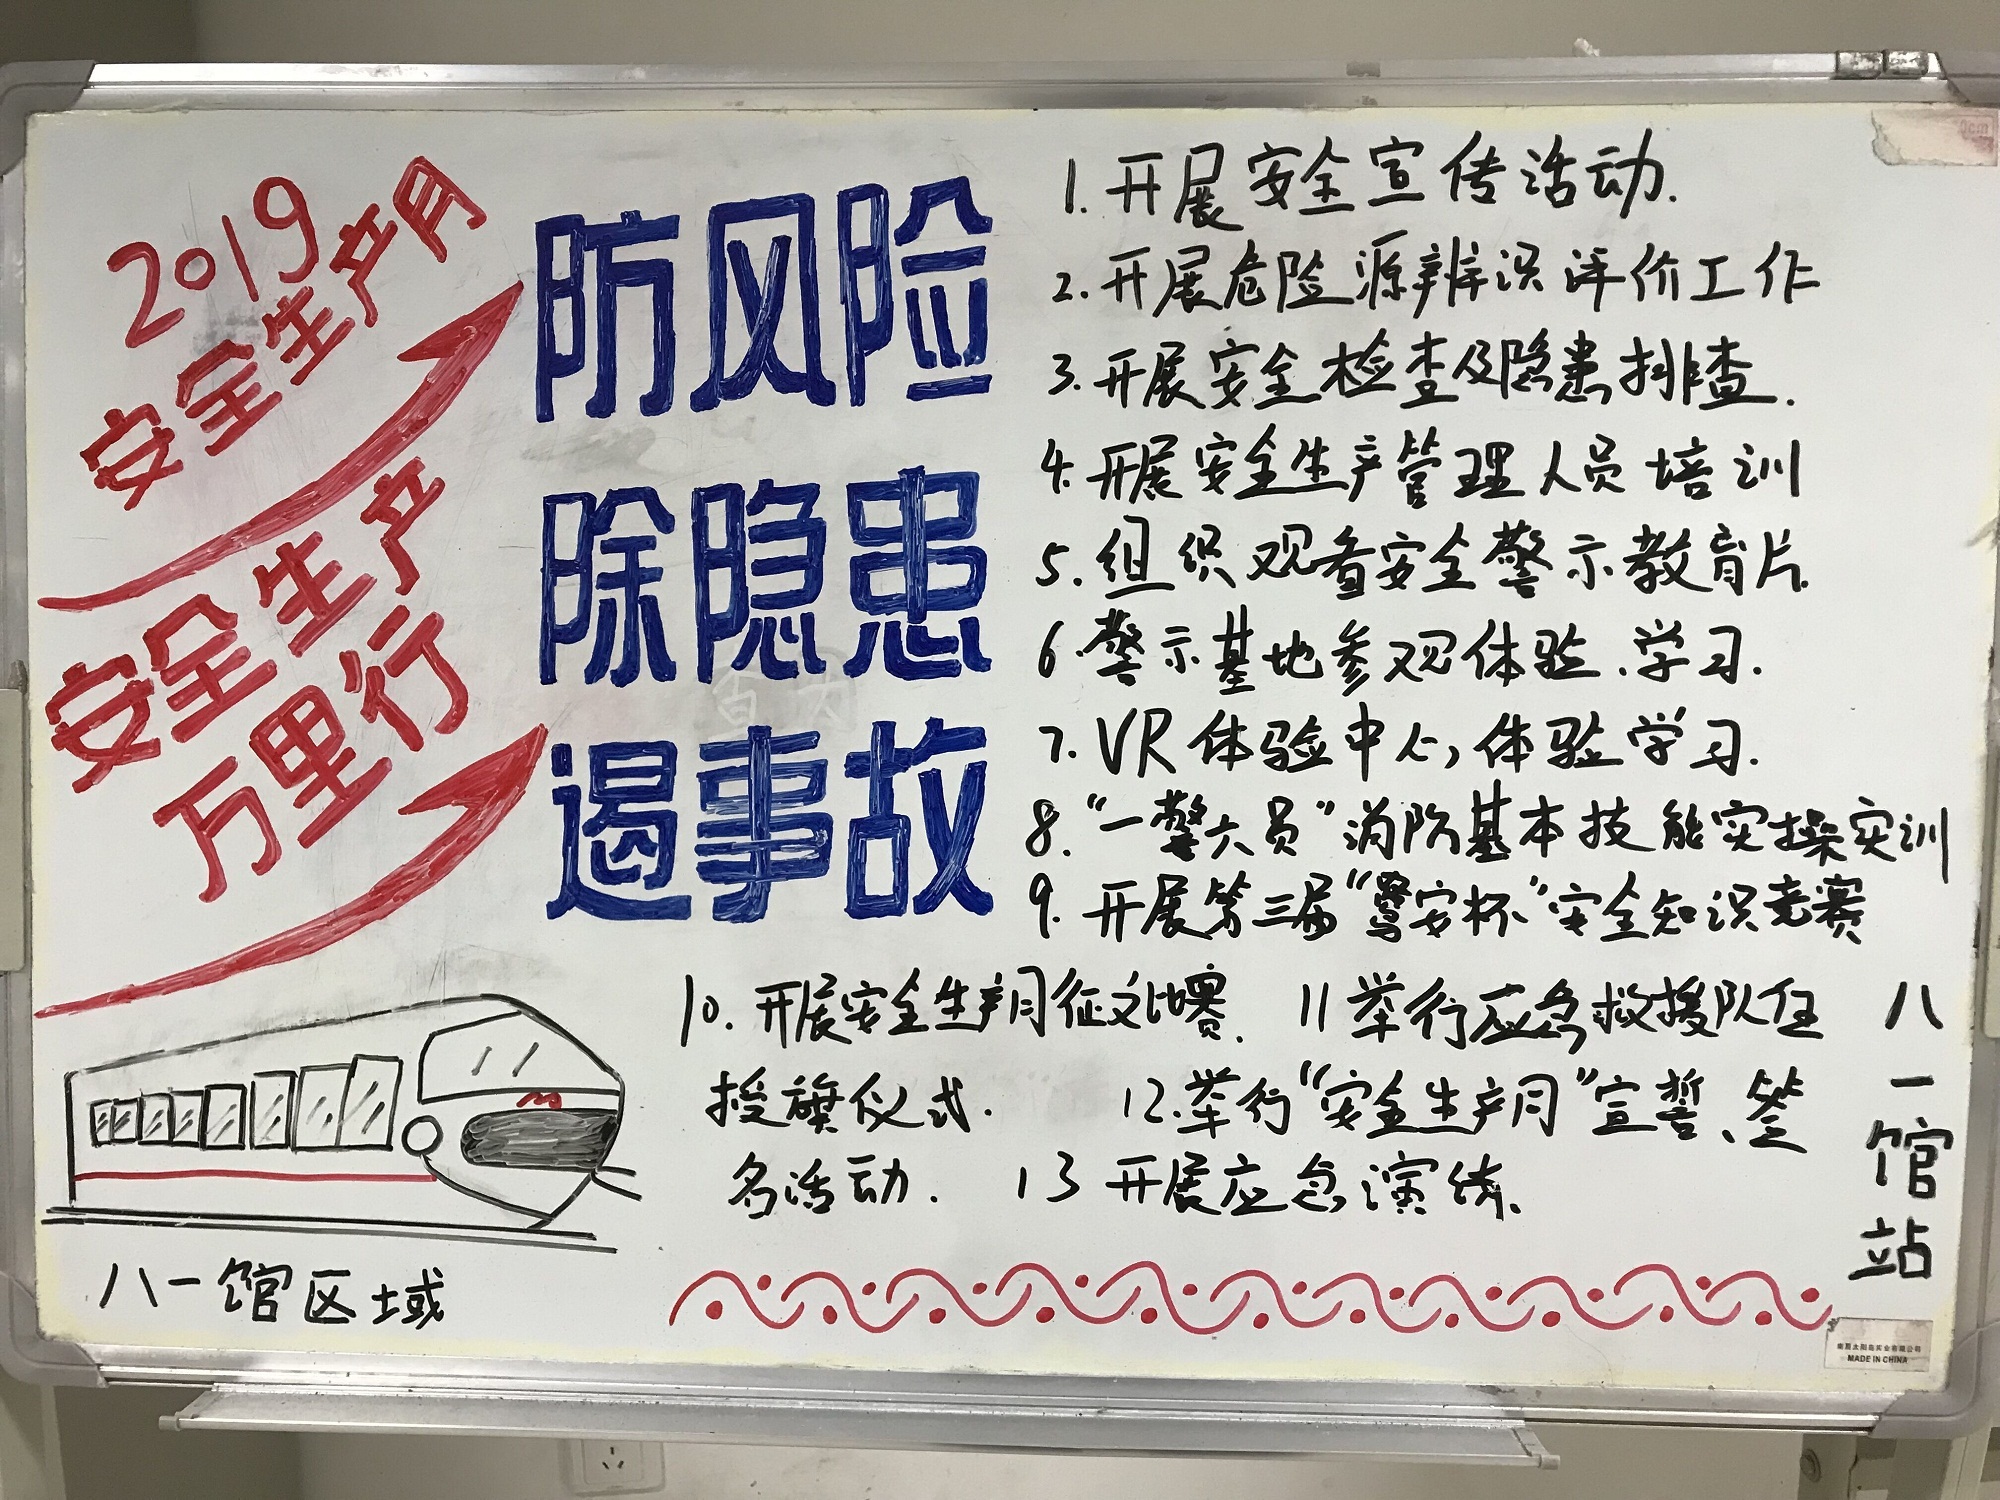 2019
安全生产月
安全生产
万里行
防风险
除隐患
遏事故
1.开展安全宣传活动.
2.开展危险源辨识评价工作
3.开展安全检查及隐患排查.
4.开展安全生产管理人员培训
5.组织观看安全警示教育片.
6.警示基地参观体验.学习.
7.VR体验中心,体验学习.
8.“一警六员”消防基本技能实操实训
9.开展第三届“鹭安杯”安全知识竞赛
10.开展安全生产月征文比赛. 11举行应急救援队伍
授旗仪式. 12.举行“安全生产月”宣誓、签
名活动. 13开展应急演练.
八一馆站
八一馆区域
MADE IN CHINA